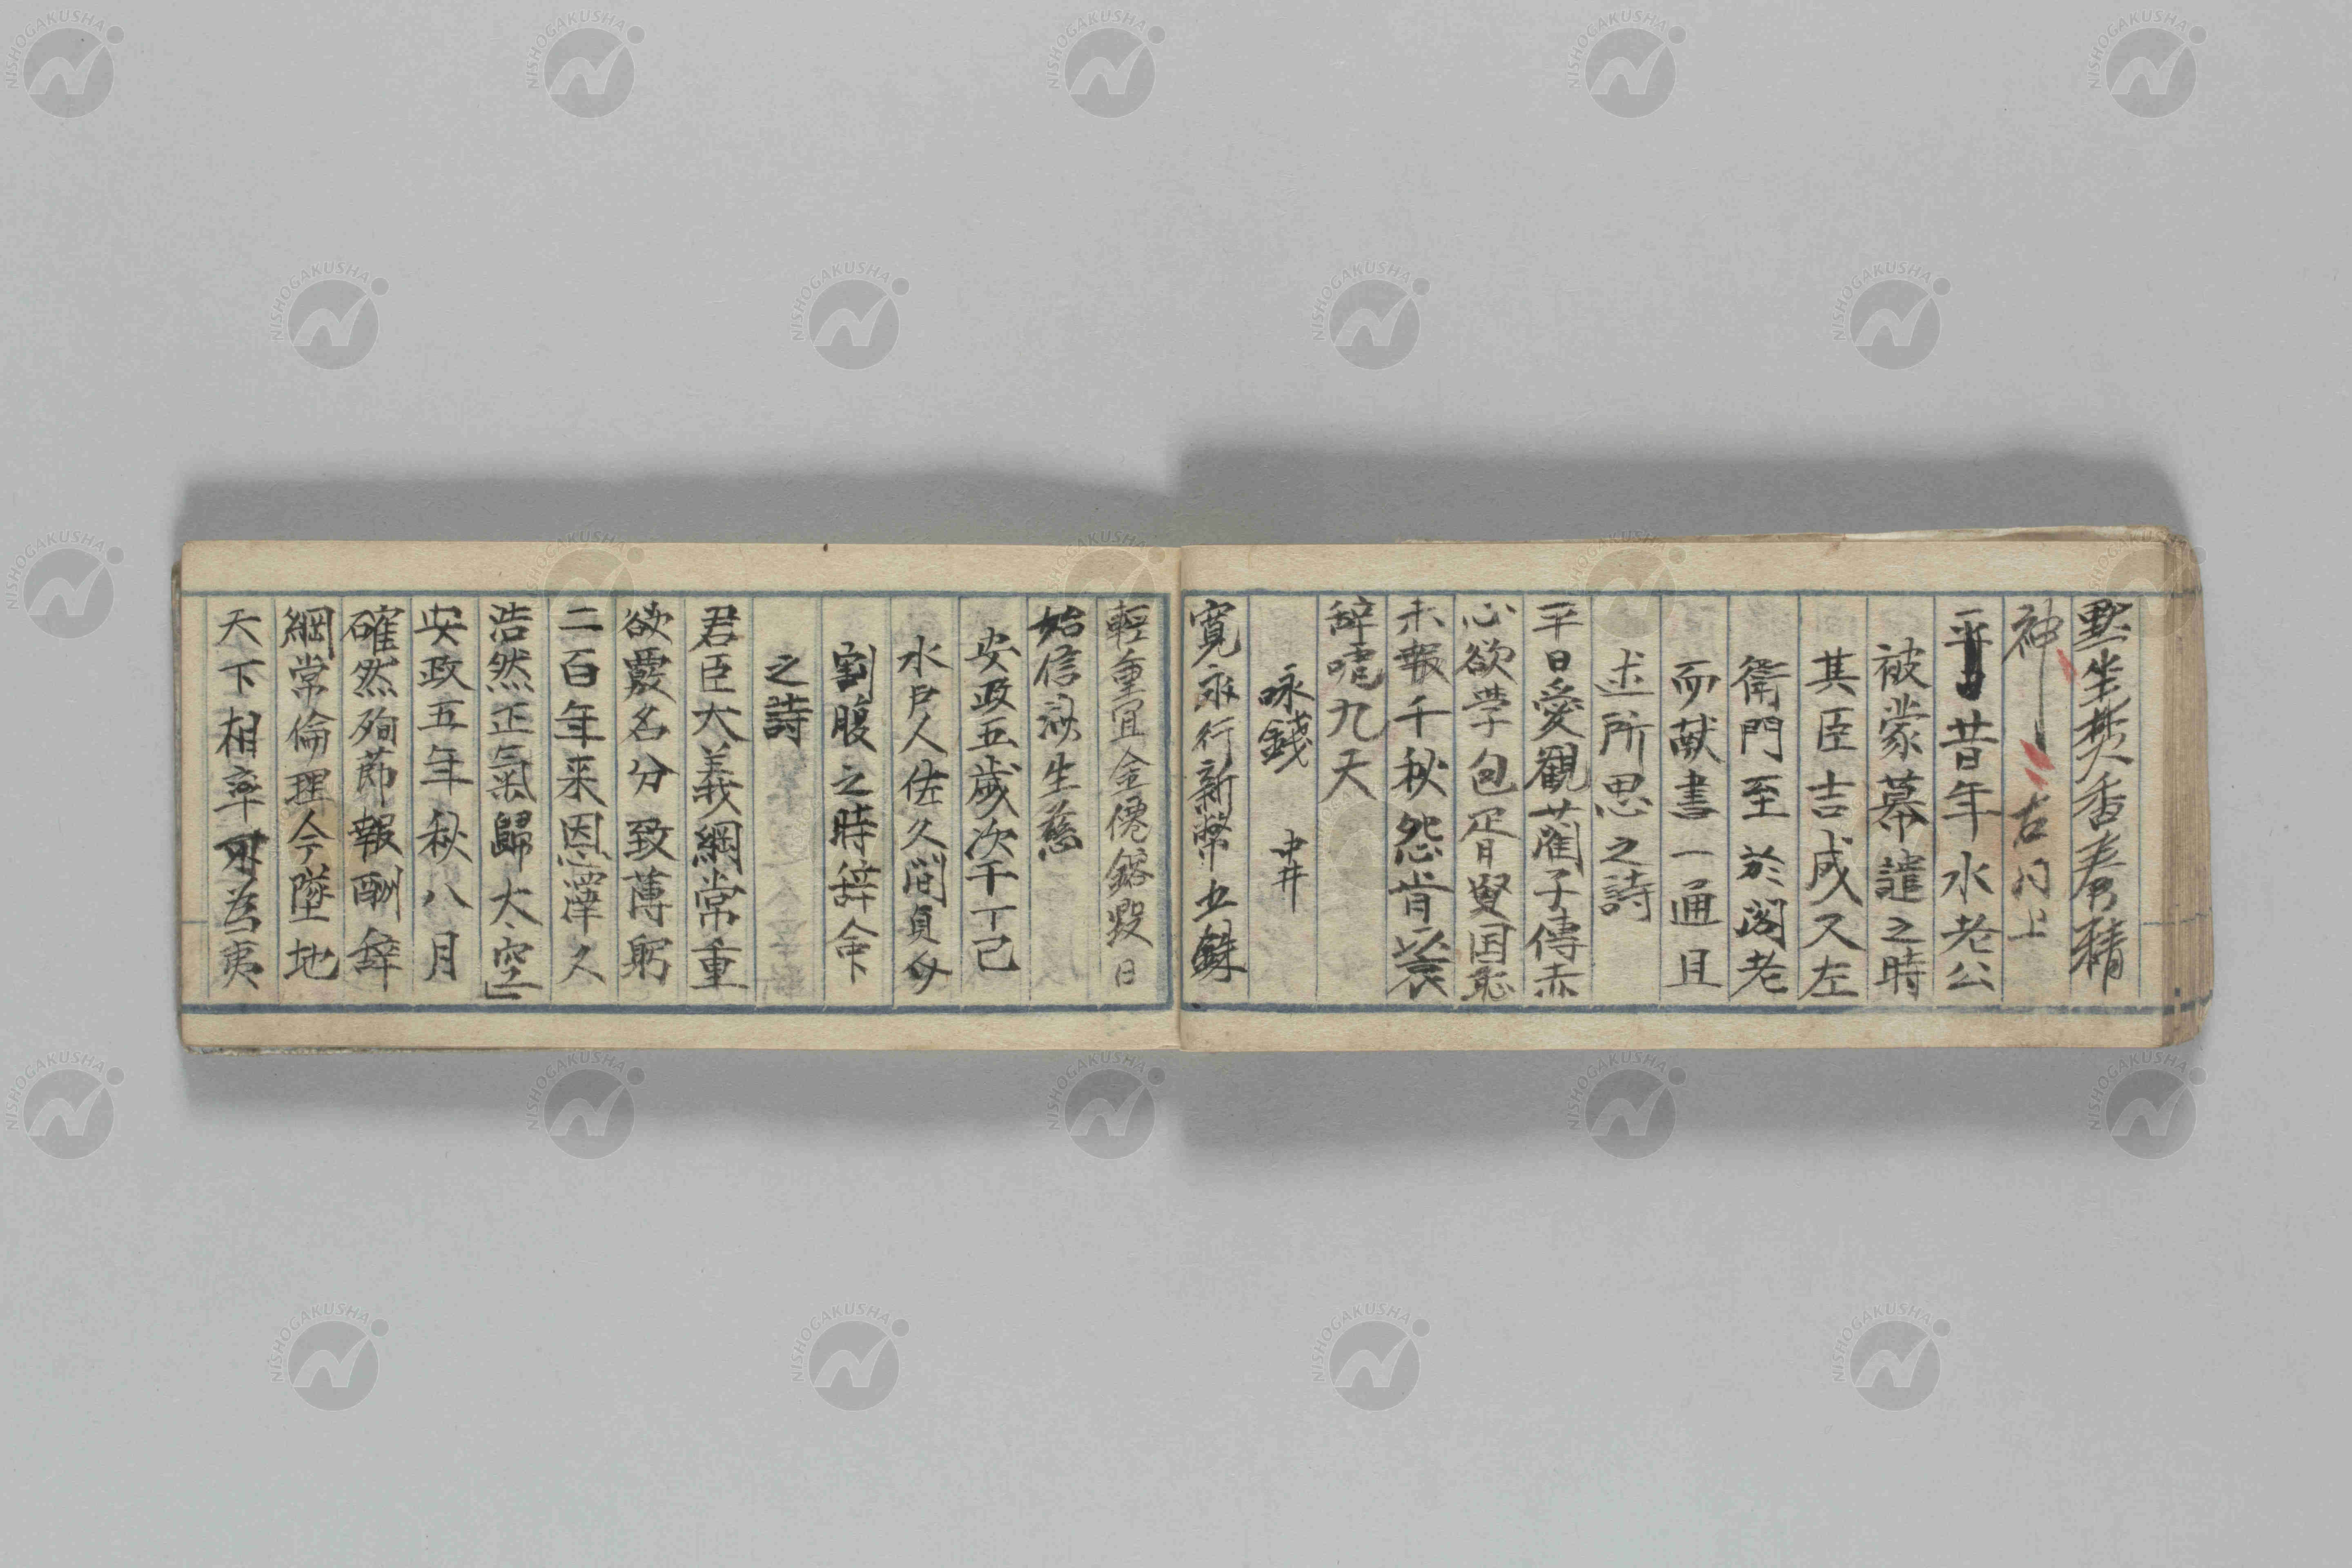 黙坐焚香養精
神
昔年水老公
被蒙幕譴之時
其臣吉成又左
衛門至於閣老
而献書一通且
述所思之詩
平日愛觀藺子傳赤
心欲學包胥賢因恥
未報千秋怨肯
辞九天
咏錢 中井
寛永行新幣五銖
輕重冝金僊鎔毀日
始信汲生慈
安政五歲次干丁己
水戸人佐久間貞介
割腹之時辞命
之詩
君臣大義綱常重
欲覈名分致薄躬
二百年来恩澤久
浩然正氣歸太空」
安政五年秋八月
確然殉節報酬辞
綱常倫理今墜地
天下相率為夷
NISHOGAKUSHA